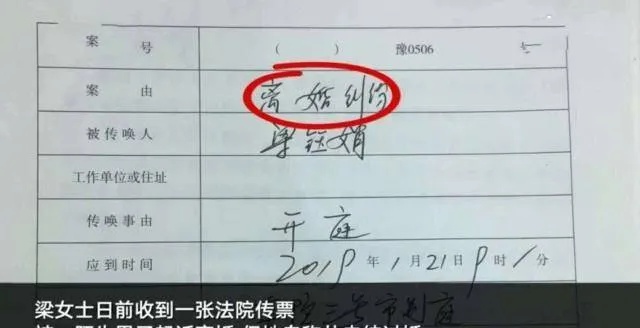 案 号 ( ) 豫0506
案 由 离婚纠纷
被传唤人 梁钰娟
工作单位或住址
传唤事由 开庭
应到时间 2019年1月21日9时 分
三号审判庭
梁女士日前收到一张法院传票